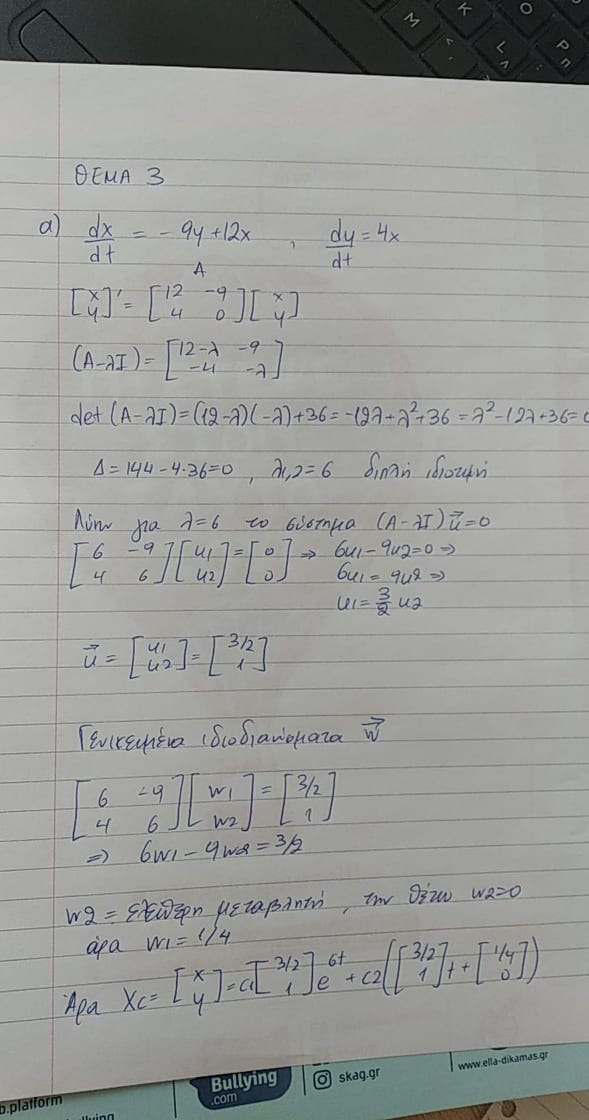 M
K
O
P
<
Λ
L
^
Π
ΘΕΜΑ 3
α) dx/dt = - 9y + 12x , dy/dt = 4x
A
[x y]' = [12 -9 4 0] [x y]
(A-λI) = [12-λ -9 -4 -λ]
det (A-λI) = (12-λ)(-λ)+36 = -12λ+λ²+36 = λ²-12λ+36=0
Δ = 144 - 4·36 = 0 , λ1,2 = 6 διπλή ιδιοτιμή
Λύνω για λ=6 το σύστημα (A-λI)u⃗=0
[6 -9 4 6] [u1 u2] = [0 0] ⇒ 6u1-9u2=0 ⇒
6u1 = 9u2 ⇒
u1 = 3/2 u2
u⃗ = [u1 u2] = [3/2 1]
Γενικευμένα ιδιοδιανύσματα w⃗
[6 -9 4 6] [w1 w2] = [3/2 1]
⇒ 6w1 - 9w2 = 3/2
w2 = ελεύθερη μεταβλητή, την θέτω w2=0
άρα w1 = 1/4
Άρα Xc = [x y] = c1 [3/2 1] e^6t + c2 ([3/2 1] t + [1/4 0])
b.platform
Bullying
.com
skag.gr
www.ella-dikamas.gr